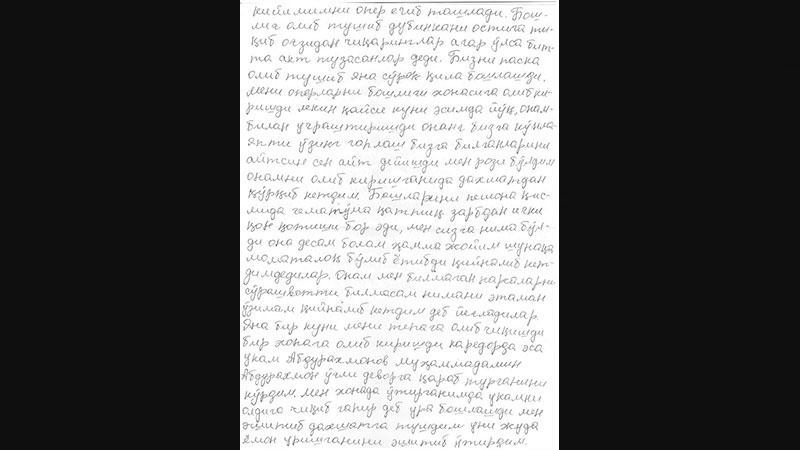 кийимимни опер ечиб ташлади. Бош-
лиғ олиб тушиб дубинкани остига ти-
қиб оғзидан чиқаринглар агар ўлса бит-
та акт тузасанлар деди. Бизни паска
олиб тушиб яна сўроқ қила бошлашди.
мени оперларни бошлиғи хонасига олиб ки-
ришди лекин қайси куни эсимда йўқ, онам
билан учраштиришди онанг бизга кўнла-
япти ўзинг гаплаш бизга билганларини
айтсин сен айт дейишди мен рози бўлдим
онамни олиб киришганида дахшатдан
қўрқиб кетдим. Бошларини пешона қис-
мида гематўма қаттиқ зарбдан ички
қон қотиши бор эди, мен сизга нима бўл-
ди она десам болам ҳамма жойим шунақа
моматалоқ бўлиб ётибди қийналиб кет-
димдедилар. Онам мен билмаган нарсаларни
сўрашвотти билмасам нимани этаман
ўзимам қийналиб кетдим деб йигладилар.
Яна бир куни мени тепага олиб чиқишди
бир хонага олиб киришди каредорда эса
укам Абдурахмонов муҳаммадамин
Абдурахмон ўғли деворга қараб турганини
кўрдим. мен хонада ўтирганимда укамни
олдига чиқиб гапир деб ура бошлашди мен
эшитиб дахшатга тушдим уни жуда
ёмон уришганини эшитиб ўтирдим.